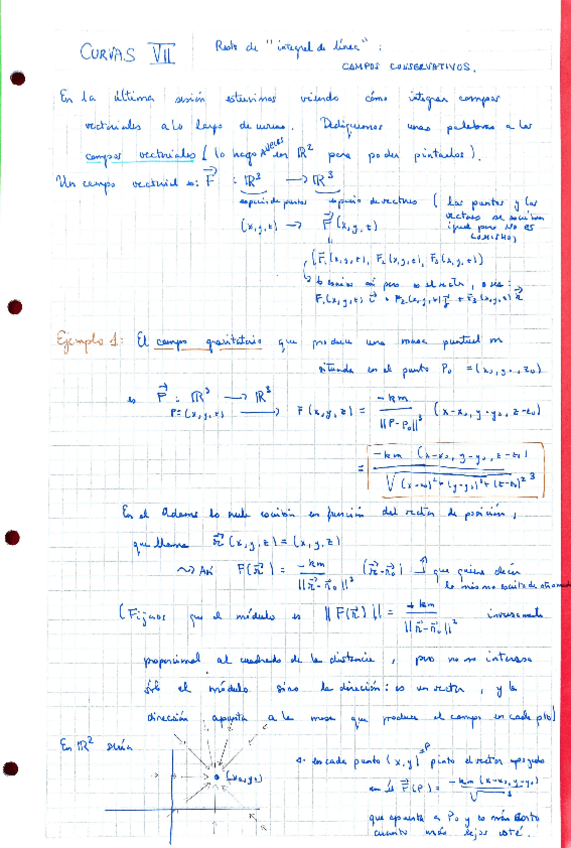 CURVAS VII Resto de "integral de línea":
CAMPOS CONSERVATIVOS.
En la última sesión estuvimos viendo cómo integrar campos
vectoriales a lo largo de curvas. Dediquemos unas palabras a los
campos vectoriales (lo hago en ℝ² para poder pintarlos).
Un campo vectorial es: F⃗ : ℝ³ → ℝ³
espacio de puntos espacio de vectores (los puntos y los
vectores se escriben
igual pero NO ES
LO MISMO)
(x,y,z) → F⃗(x,y,z)
(F₁(x,y,z), F₂(x,y,z), F₃(x,y,z))
lo escribo así pero es el vector, o sea:
F₁(x,y,z) i⃗ + F₂(x,y,z) j⃗ + F₃(x,y,z) k⃗
Ejemplo 1: El campo gravitatorio que produce una masa puntual m
situada en el punto P₀ = (x₀, y₀, z₀)
es F⃗ : ℝ³ → ℝ³
P=(x,y,z) → F(x,y,z) = -km / ||P-P₀||³ (x-x₀, y-y₀, z-z₀)
= -km (x-x₀, y-y₀, z-z₀) / √((x-x₀)²+(y-y₀)²+(z-z₀)²)³
En el Adams lo suele escribir en función del vector de posición,
que llama r⃗(x,y,z) = (x,y,z)
⇝ Así F(r⃗) = -km / ||r⃗-r⃗₀||³ (r⃗-r⃗₀) que quiere decir
lo mismo escrito de otro modo
(Fijaos que el módulo es ||F(r⃗)|| = km / ||r⃗-r⃗₀||² inversamente
proporcional al cuadrado de la distancia, pero no nos interesa
sólo el módulo sino la dirección: es un vector, y la
dirección apunta a la masa que produce el campo en cada pto)
En ℝ² sería
(x₀,y₀)
en cada punto (x,y)=P pinto el vector apoyado
en él F⃗(P) = -km(x-x₀, y-y₀) / √ ³
que apunta a P₀ y es más corto
cuanto más lejos esté.